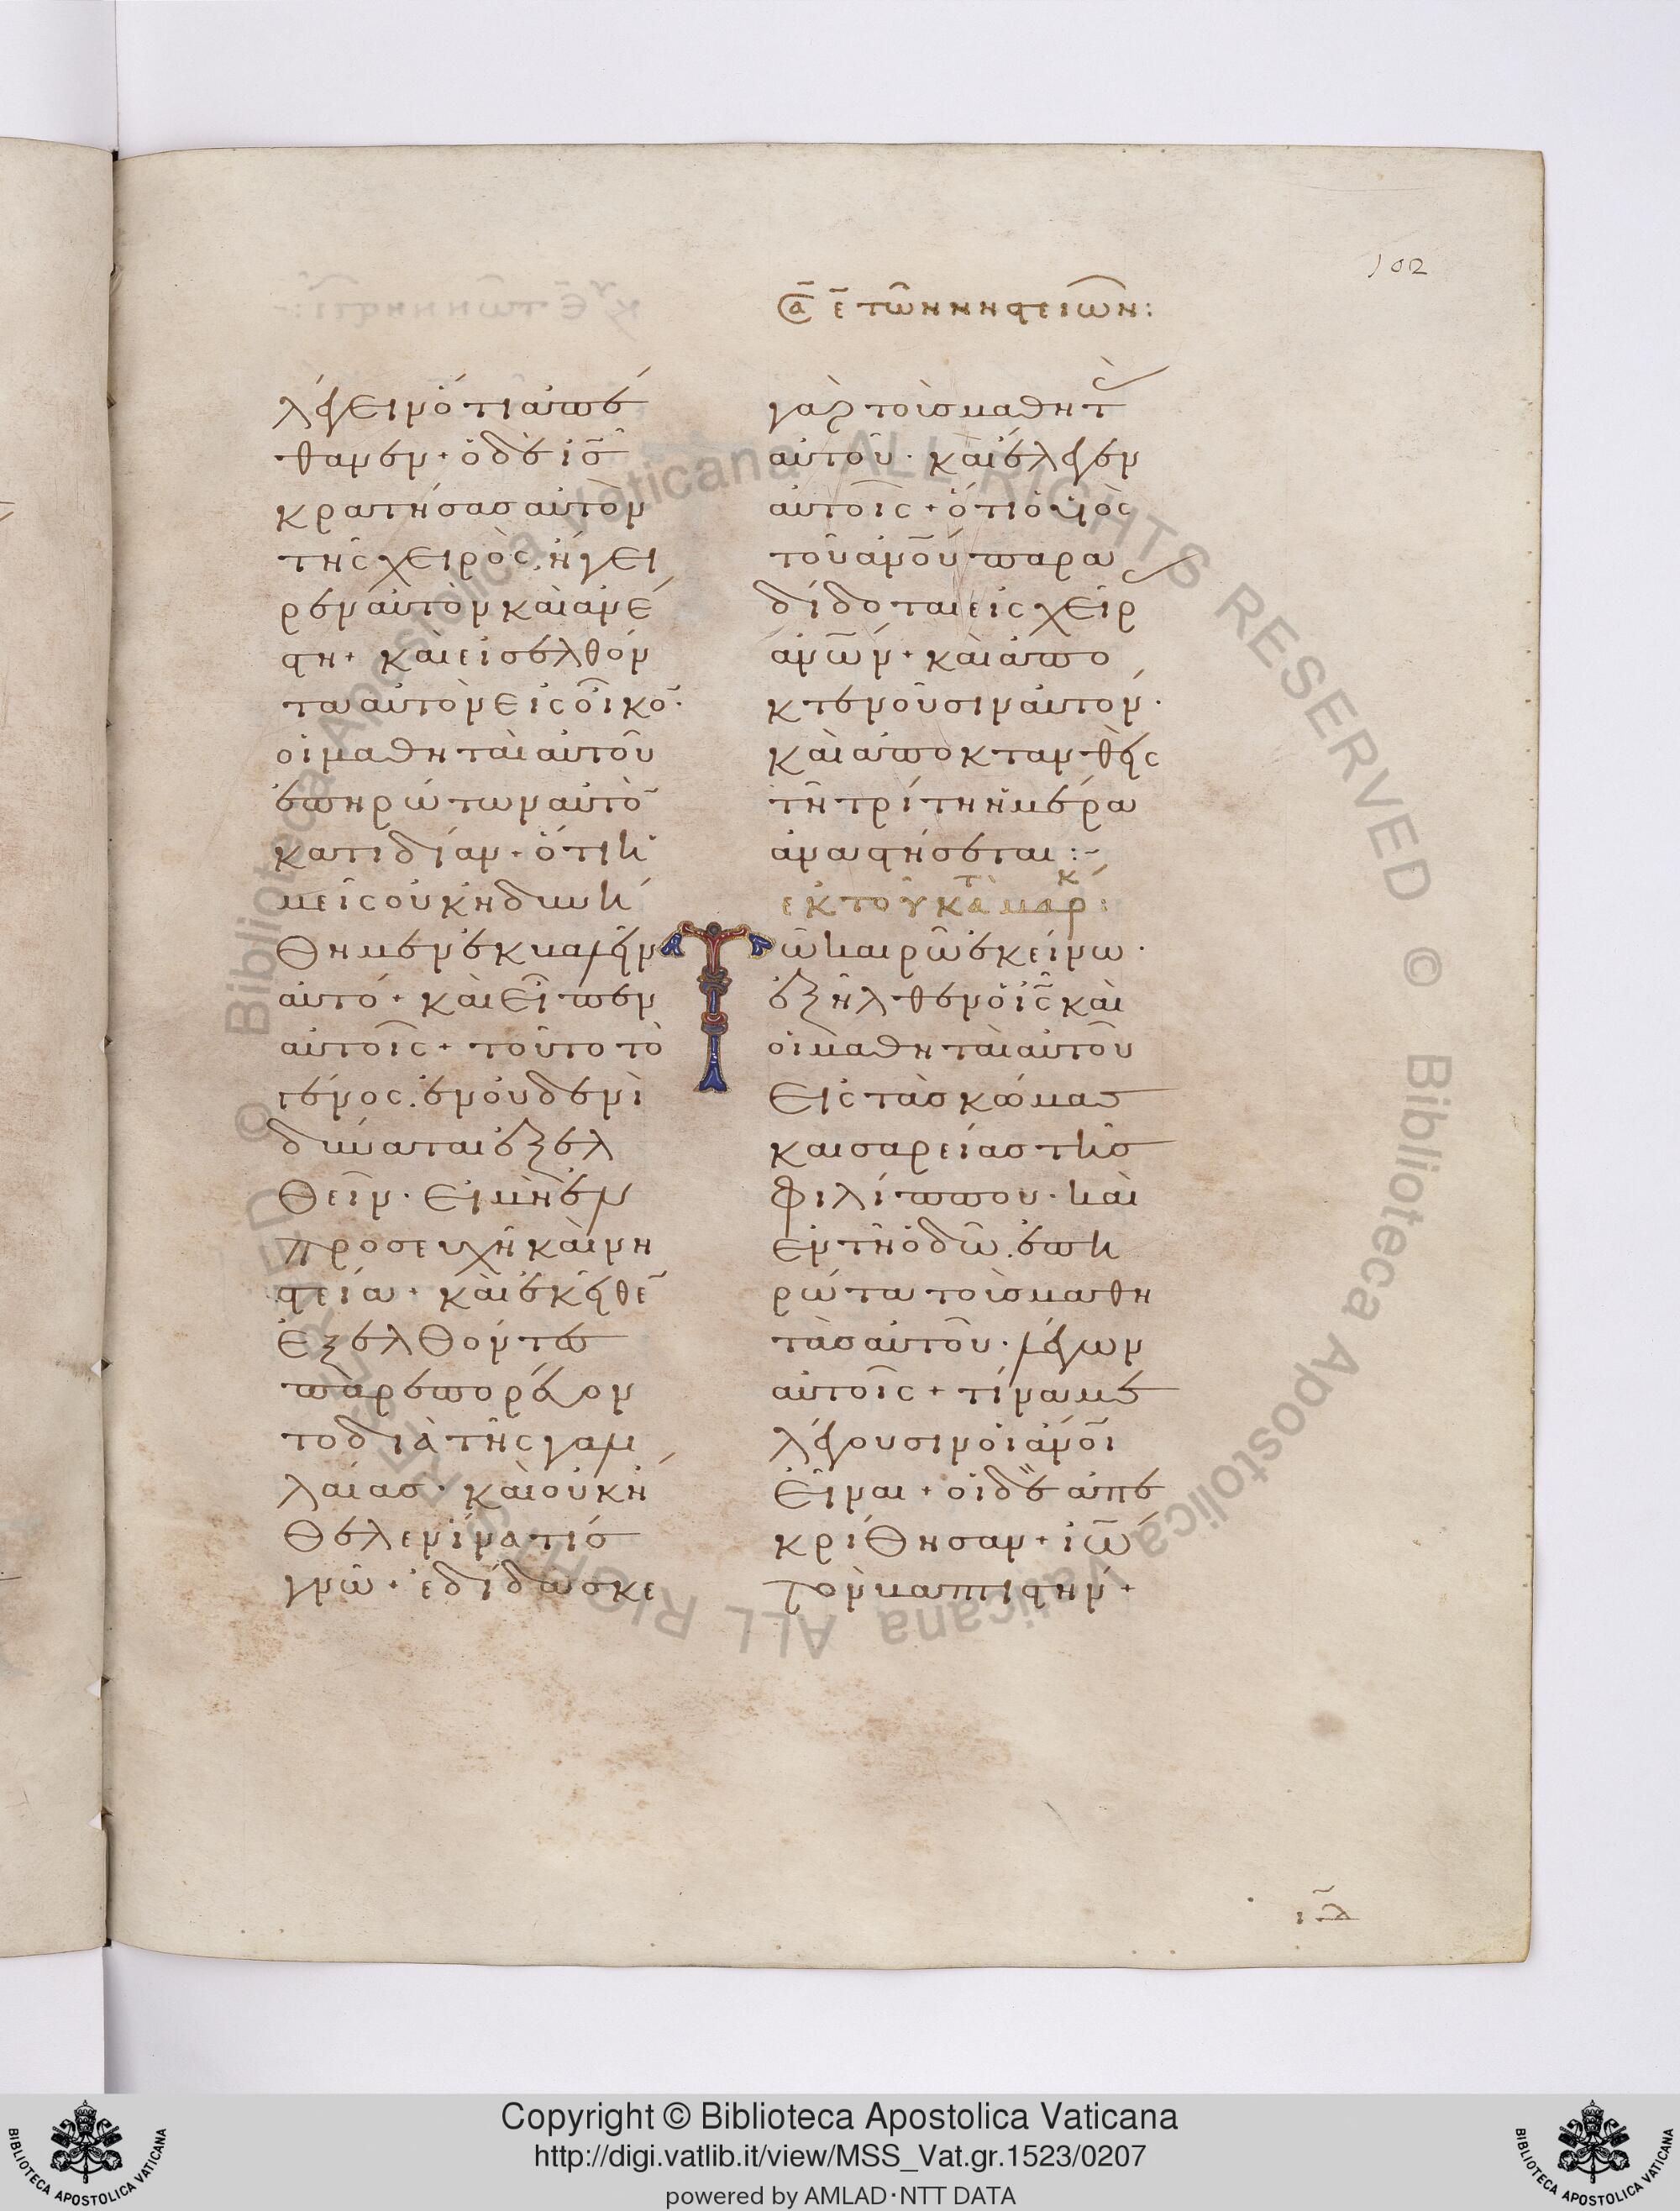 102
Σα ε τῶν νηστειῶν:
λέγειν ὅτι ἀπέ
θανεν· ὁ δὲ ις
κρατήσας αὐτὸν
τῆς χειρὸς, ἤγει
ρεν αὐτὸν καὶ ἀνέ
στη· καὶ εἰσελθόν
τα αὐτὸν εἰς οἶκο̄·
οἱ μαθηταὶ αὐτοῦ
ἐπηρώτων αὐτο̄
κατιδίαν· ὅτι ἡ
μεῖς οὐκ ἠδυνή
θημεν ἐκβαλεῖν
αὐτό· καὶ εἶπεν
αὐτοῖς· τοῦτο τὸ
γένος, ἐν οὐδενὶ
δύναται ἐξελ
θεῖν· εἰ μὴ ἐν
προσευχῆ καὶ νη
στεία· καὶ ἐκεῖθε̄
ἐξελθόντες
παρεπορεύον
το διὰ τῆς γαλι
λαίας· καὶ οὐκ ἤ
θελεν ἵνα τίς
γνῶ· ἐδίδασκε
γὰρ τοὺς μαθητ
αὐτοῦ· καὶ ἔλεγεν
αὐτοῖς· ὅτι ὁ υἱὸς
τοῦ ανου παρα
δίδοται εἰς χεῖρ
ανων· καὶ ἀπο
κτενοῦσιν αὐτόν·
καὶ ἀποκτανθεὶς
τῆ τρίτη ἡμέρα
ἀναστήσεται:–
ἐκ τοῦ κατὰ μάρκ:
Τῶ καιρῶ ἐκείνω·
ἐξῆλθεν ὁ ις καὶ
οἱ μαθηταὶ αὐτοῦ
εἰς τὰς κώμας
καισαρείας τῆς
φιλίππου· καὶ
ἐν τῆ ὁδῶ, ἐπη
ρώτα τοὺς μαθη
τὰς αὐτοῦ· λέγων
αὐτοῖς· τίνα με
λέγουσιν οἱ ανοι
εἶναι· οἱ δὲ ἀπε
κρίθησαν· ἰω
τὸν βαπτιστήν·
ιλ
Copyright © Biblioteca Apostolica Vaticana
http://digi.vatlib.it/view/MSS_Vat.gr.1523/0207
powered by AMLAD·NTT DATA
BIBLIOTECA APOSTOLICA VATICANA
BIBLIOTECA APOSTOLICA VATICANA
© Biblioteca Apostolica Vaticana ALL RIGHTS RESERVED
© Biblioteca Apostolica Vaticana ALL RIGHTS RESERVED